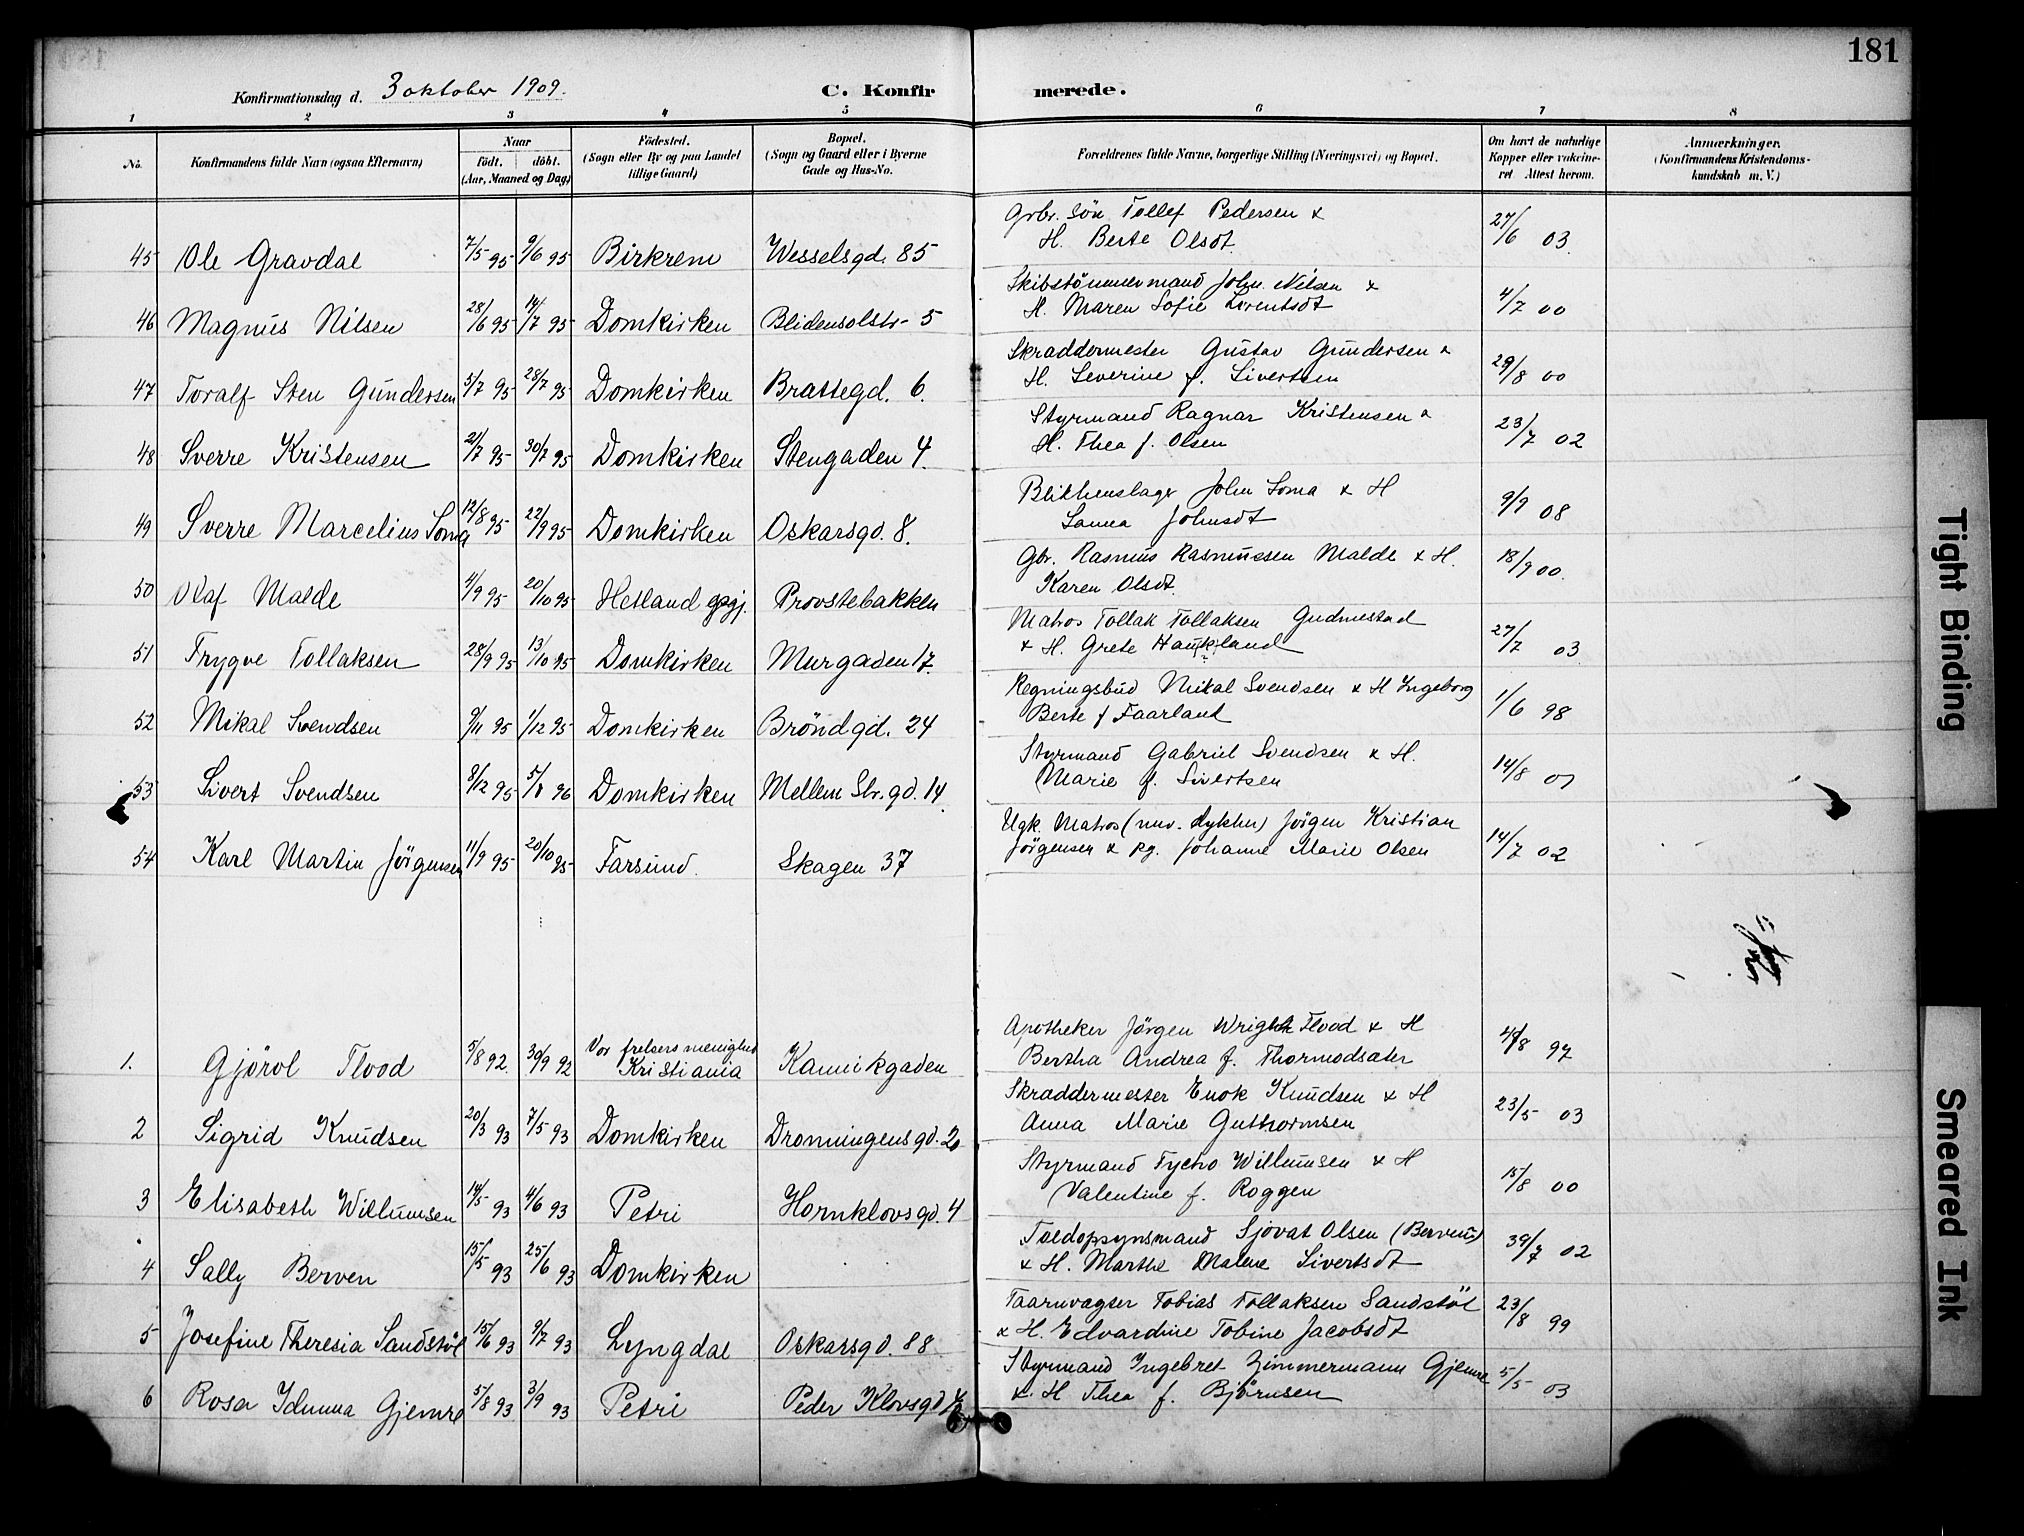 181
Konfirmationsdag d. 3 oktober 1909.
C. Konfirmerede.
1 2 3 4 5 6 7 8
No.
Konfirmandens fulde Navn (ogsaa Efternavn)
Naar
födt. döbt.
(Aar, Maaned og Dag)
Födested.
(Sogn eller By og paa Landet
tillige Gaard)
Bopæl.
(Sogn og Gaard eller i Byerne
Gade og Hus-No.
Forældrenes fulde Navne, borgerlige Stilling (Næringsvei) og Bopæl.
Om havt de naturlige
Kopper eller vakcine-
ret Attest herom.
Anmærkninger.
(Konfirmandens Kristendoms-
kundskab m. V.)
Grbr. Sön Tollef Pedersen &
45 Ole Gravdal 7/5 95 9/6 95 Birkrem Wesselsgd. 85 H. Berte Olsdt. 27/6 03.
Skibstömmermand John Nilsen &
46 Magnus Nilsen 28/6 95 14/7 95 Domkirken Blidensolstr- 5 H. Maren Sofie Lorentsdt 4/7 00
Skræddermester Gustav Gundersen &
47 Toralf Sten Gundersen 5/7 95 28/7 95 Domkirken Brattegd. 6. H. Severine f. Sivertsen 29/8 00
Styrmand Ragnar Kristensen &
48 Sverre Kristensen 21/7 95 30/7 95 Domkirken Stengaden 4. H. Thea f. Olsen 23/7 02
Blikkenslager John Soma & H
49 Sverre Marcelius Soma 12/8 95 22/9 95 Domkirken Oskarsgd. 8. Sanna Johnsdt 9/9 08
Gbr. Rasmus Rasmussen Malde & H.
50 Olaf Malde 4/9 95 20/10 95 Hetland gpgj. Provstebakken Karen Olsdt. 18/9 00.
Matros Tollak Tollaksen Gudmestad
51 Trygve Tollaksen 28/9 95 13/10 95 Domkirken Murgaden 17. & H. Grete Haukland 27/7 03
Regningsbud Mikal Svendsen & H Ingeborg
52 Mikal Svendsen 9/11 95 1/12 95 Domkirken Bröndgd. 24 Berte f Faarland 1/6 98
Styrmand Gabriel Svendsen & H.
53 Sivert Svendsen 8/12 95 96 Domkirken Mellem Str.gd. 14. Marie f. Sivertsen 14/8
Ugk. Matros (nuv. dykker) Jörgen Kristian
54 Karl Martin Jörgensen 11/9 95 20/10 95 Farsund. Skagen 37 Jörgensen & pg. Johanne Marie Olsen 14/7 02
Apotheker Jörgen Wright Flood & H
1. Gjörvl Flood 5/8 92. 30/9 92 Vor frelsers menighed
Kristiania Kannikgaden Bertha Andrea f. Thormodsæter 97
Skræddermester Enok Knudsen & H
2 Sigrid Knudsen 20/3 93 7/5 93 Domkirken Dronningensgd. 20 Anna Marie Guttormsen 23/5 03
Styrmand Tycho Willumsen & H
3 Elisabeth Willumsen 14/5 93 4/6 93 Petri Hornklovsgd. 4 Valentine f. Roggen 15/8 00
Toldopsynsmand Sjovat Olsen (Berven)
4 Sally Berven 15/5 93 25/6 93 Domkirken & H. Marthe Malene Sivertsdt 02
Taarnvagter Tobias Tollaksen Sandstöl
5 Josefine Theresia Sandstöl 15/6 93 9/7 93 Lyngdal Oskarsgd. 88 & H. Edvardine Tobine Jacobsdt 23/8 99
Styrmand Ingebret Zimmermann Gjemre
6 Rosa Idunna Gjemre 5/8 93 3/9 93 Petri Peder Klovsgd & H Thea f. Björnsen 5/5 03
Tight Binding
Smeared Ink